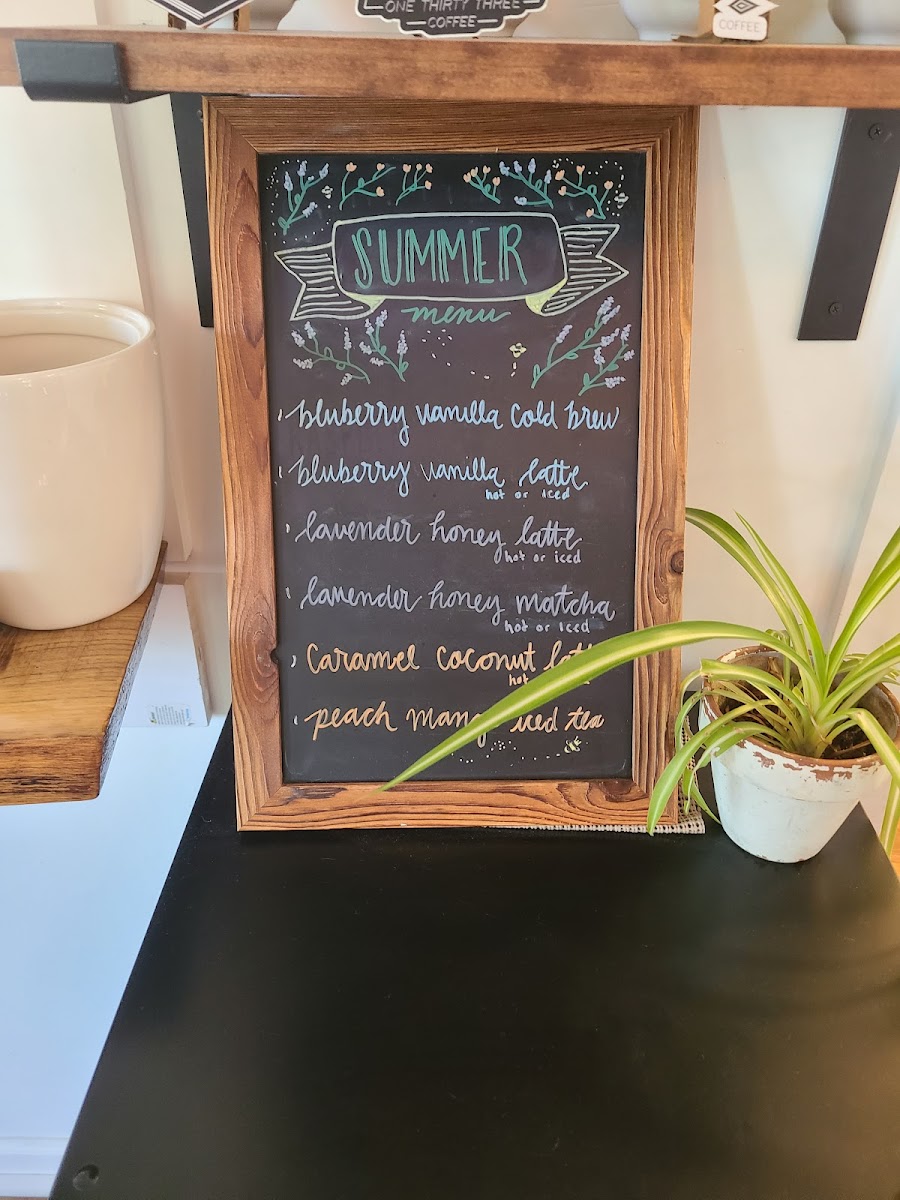 ONE THIRTY THREE
COFFEE
COFFEE
SUMMER
menu
bluberry vanilla cold brew
bluberry vanilla latte
hot or iced
lavender honey latte
hot or iced
lavender honey matcha
hot or iced
caramel coconut
hot
peach iced tea